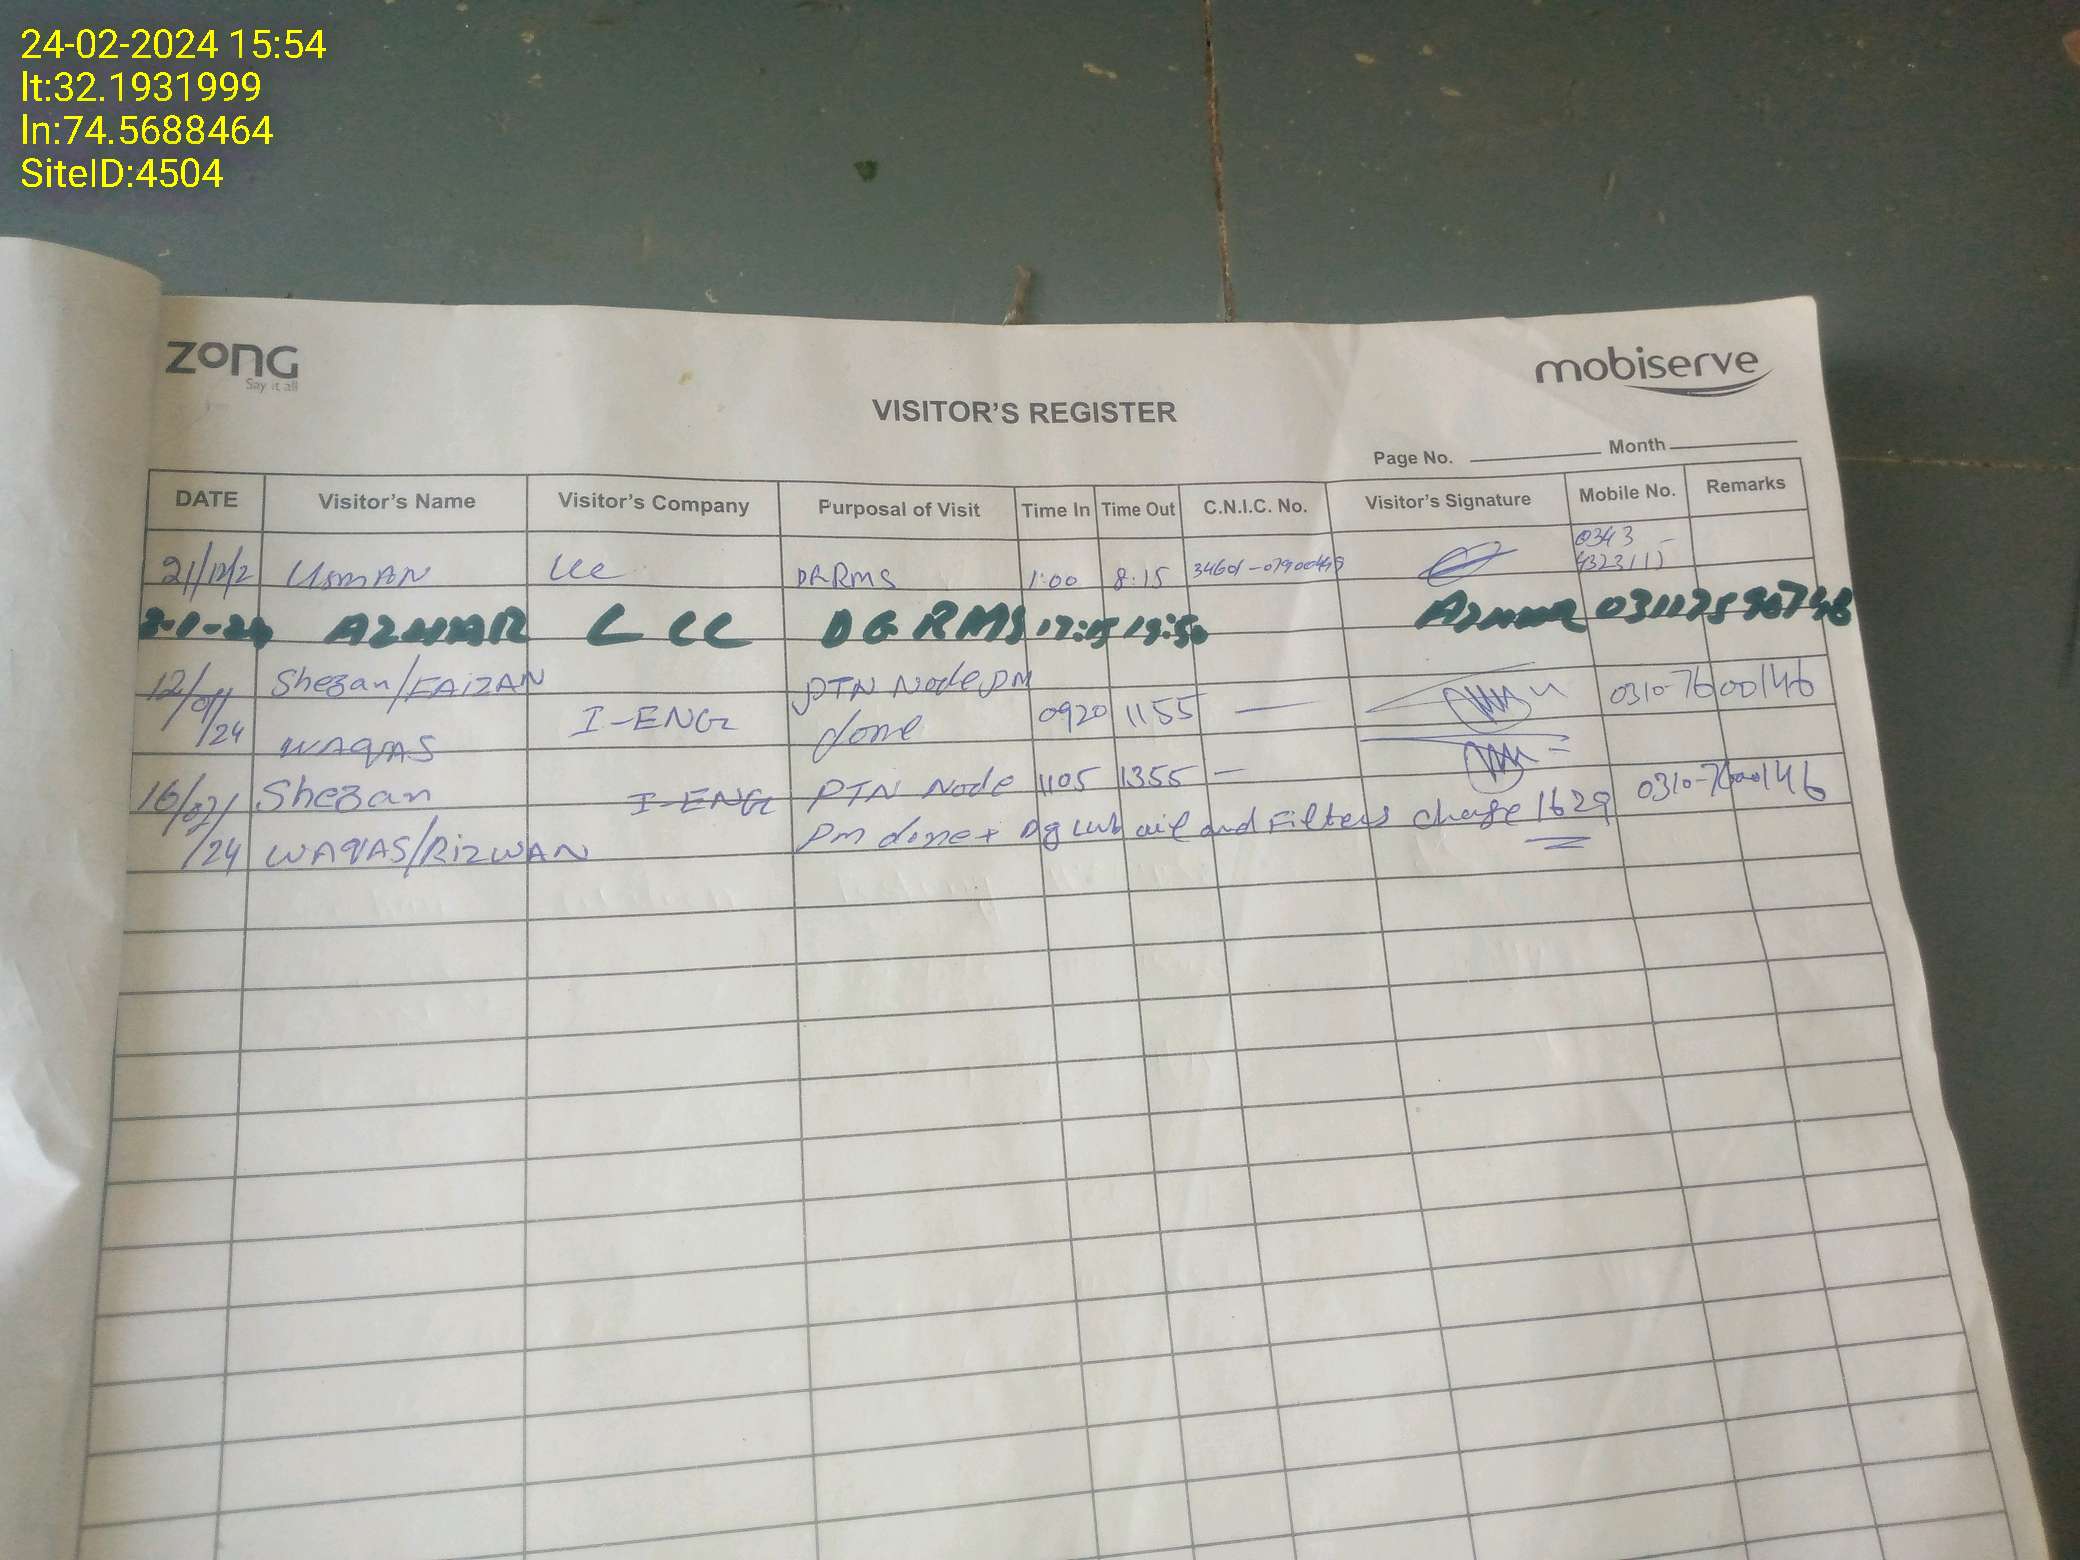 24-02-2024 15:54
lt:32.1931999
ln:74.5688464
SiteID:4504
zong
Say it all
mobiserve
VISITOR'S REGISTER
Page No. Month
DATE Visitor's Name Visitor's Company Purposal of Visit Time In Time Out C.N.I.C. No. Visitor's Signature Mobile No. Remarks
21/12/2 USMAN LCC RMS 1:00 8:15 0343
AZHAR LCC DG RMS 17:15 19:50
12/01/24 Shezan/FAIZAN PTN Node PM 0310-7600146
WAQAS I-ENG done 0920 1155 —
16/02/24 Shezan I-ENG PTN Node 1105 1355 — 0310-7600146
WAQAS/RIZWAN PM done + Dg Lub oil and Filters change 1629